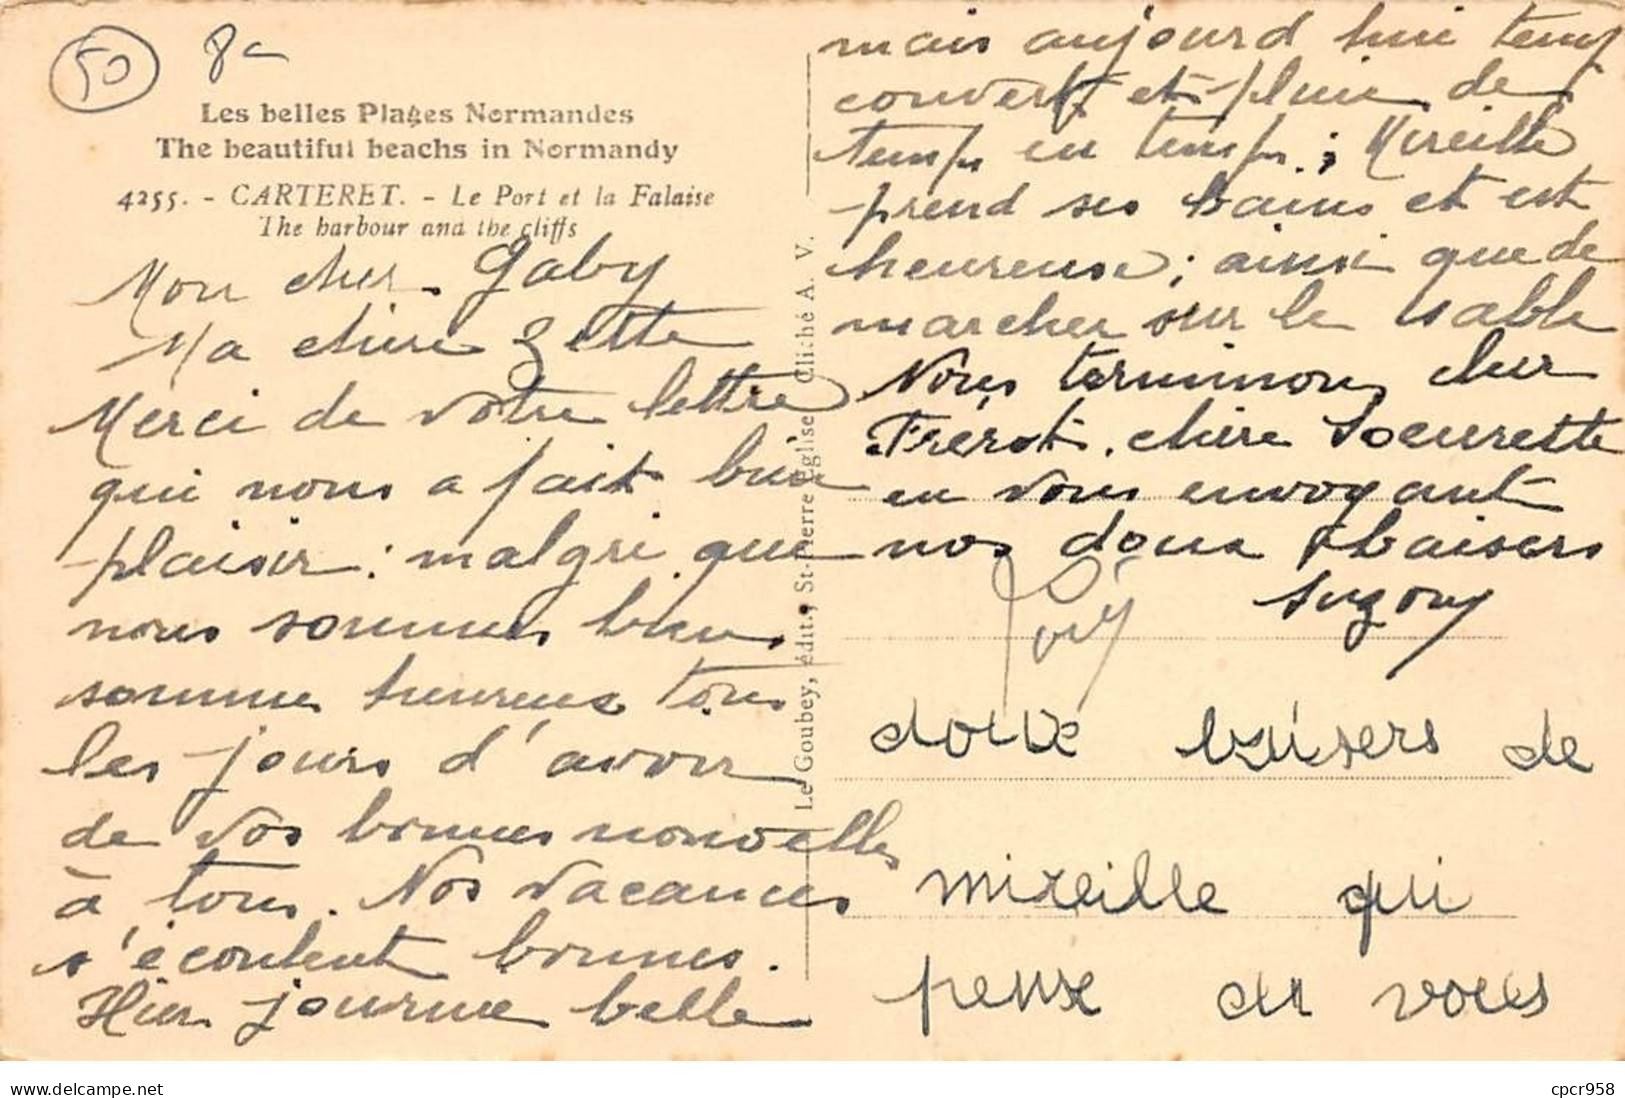 50 8
Les belles Plages Normandes
The beautiful beachs in Normandy
4255. - CARTERET. - Le Port et la Falaise
The harbour and the cliffs
Mon cher Gaby
Ma chère Zette
Merci de votre lettre
qui nous a fait bien
plaisir : malgré que
nous sommes bien
somme heureux tous
les jours d'avoir
de vos bonnes nouvelles
à tous. Nos vacances
s'écoulent bonnes.
Hier journée belle
Le Goubey, édit., St-Pierre Eglise Cliché A. V.
mais aujourd hui temps
couvert et pluie de
temps en temps ; Mireille
prend ses bains et est
heureuse ; ainsi que de
marcher sur le sable
Nous terminons cher
Frérot. chère Soeurette
en vous envoyant
nos doux baisers
Suzony
doux baisers de
mireille qui
pense a vous
www.delcampe.net cpcr958